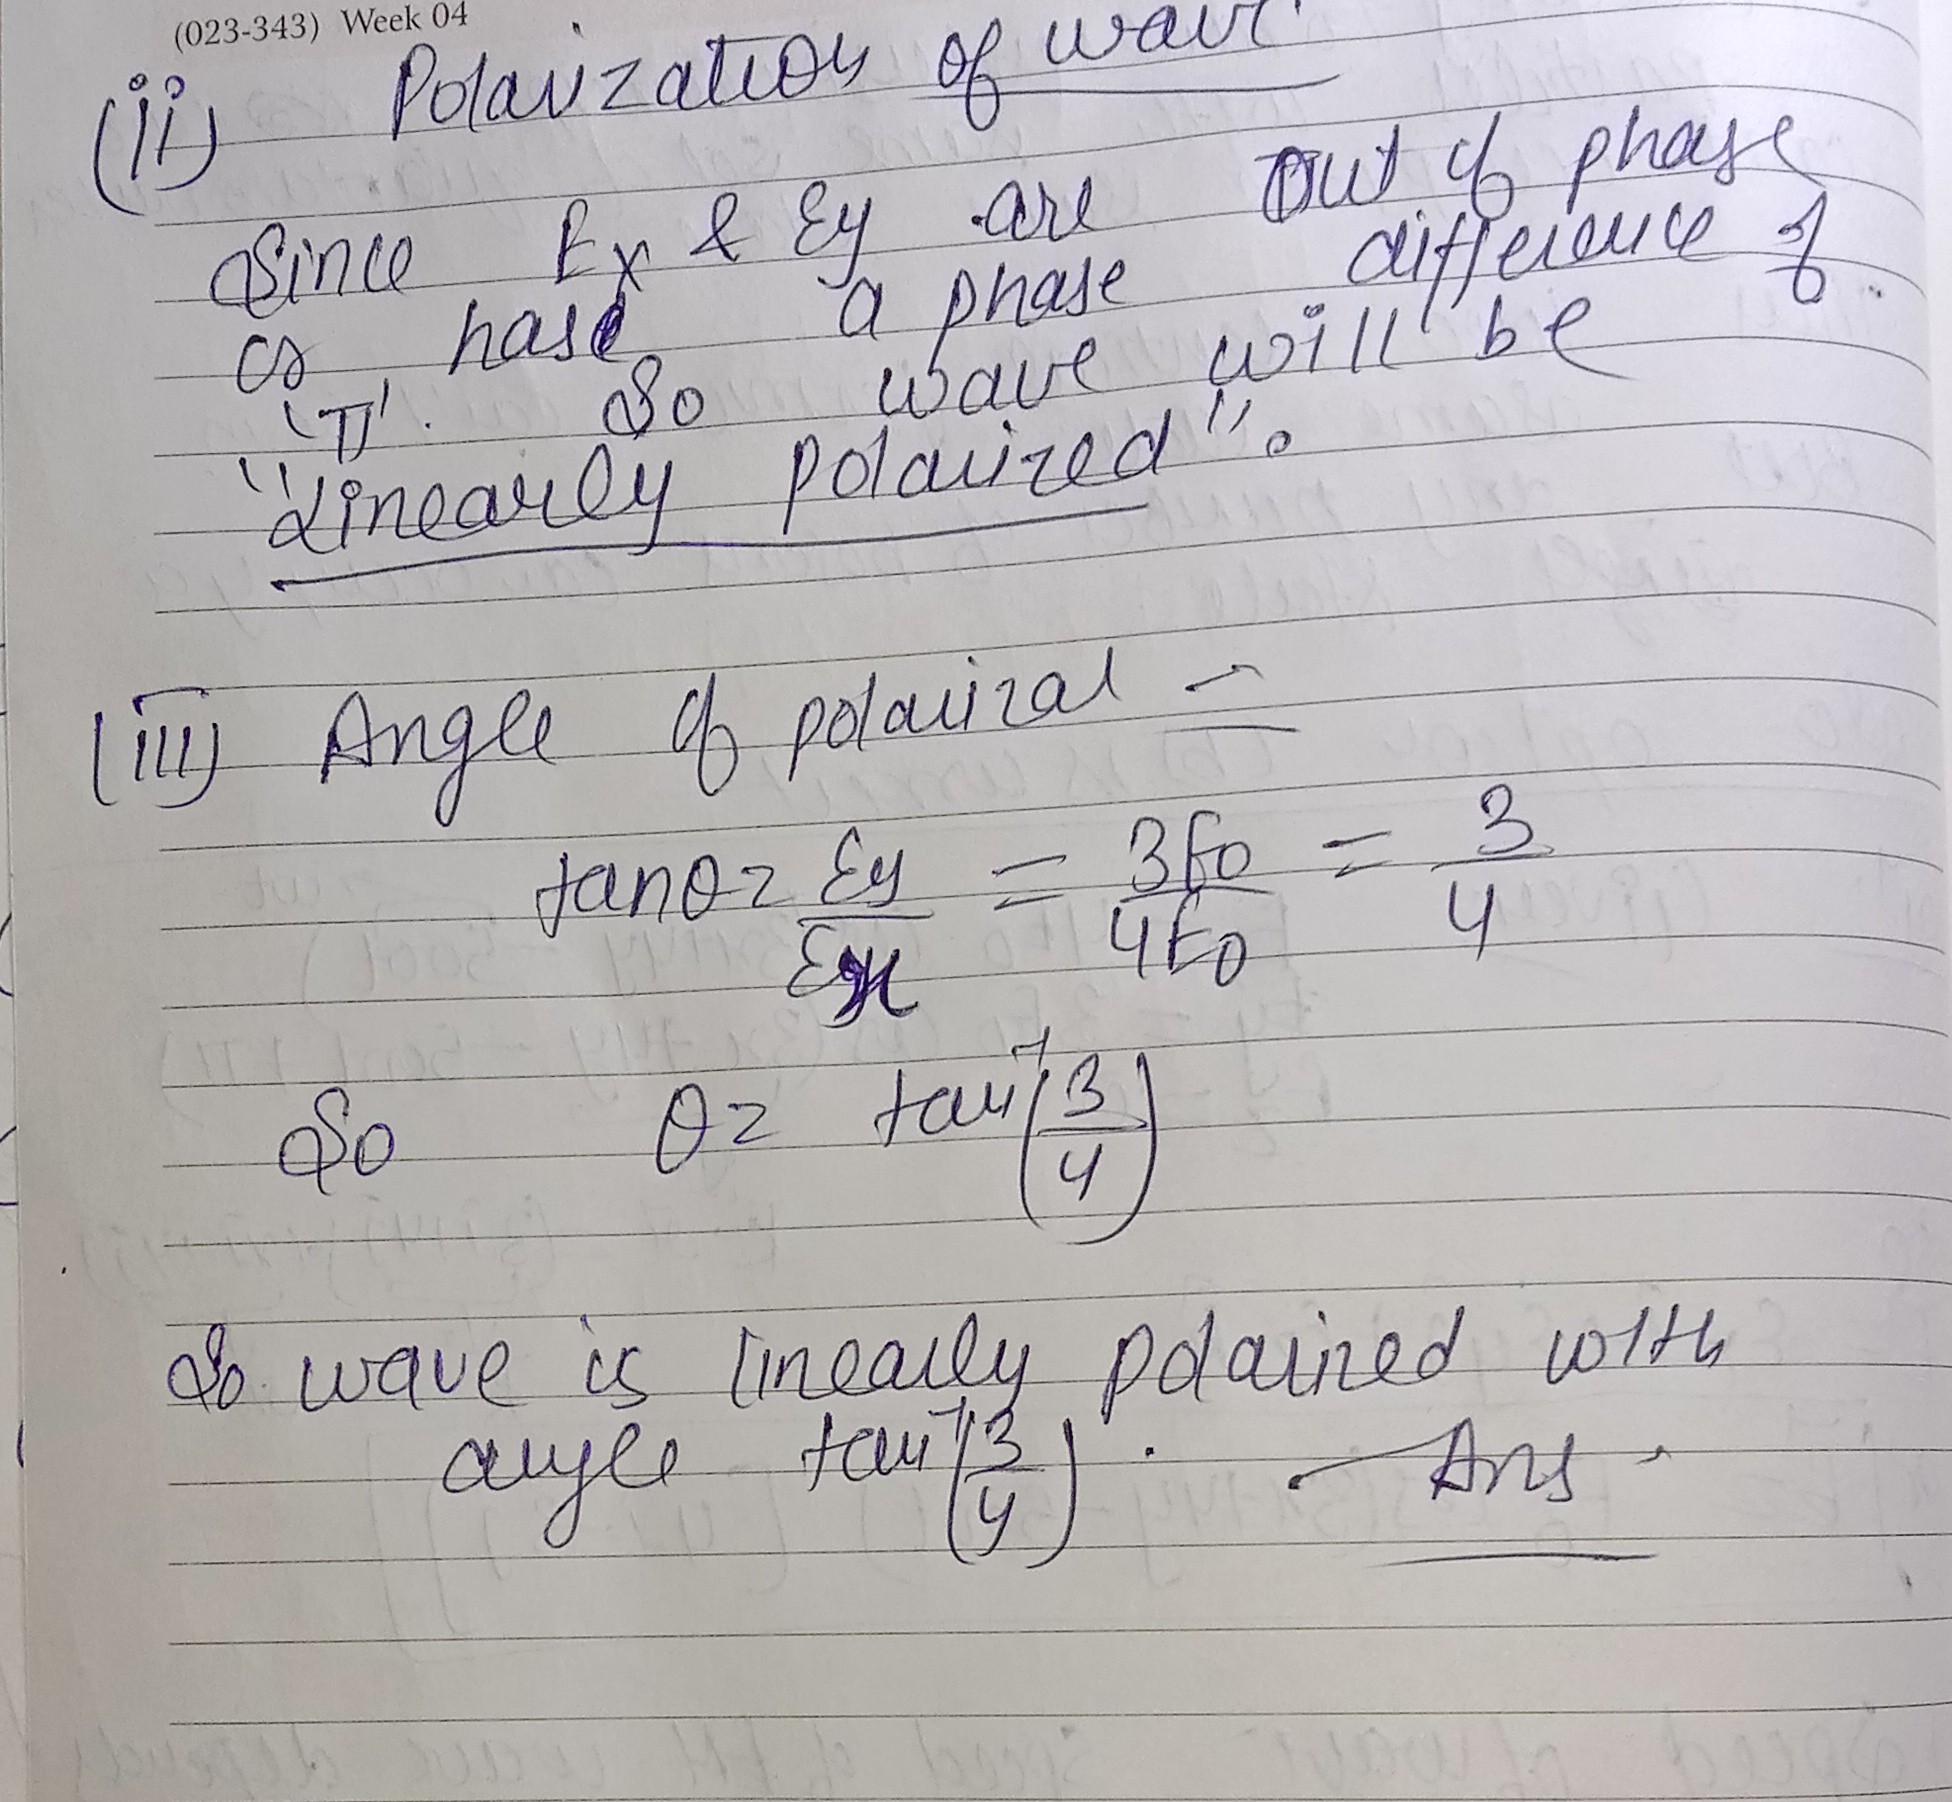 (023-343) Week 04
(ii) Polarization of wave
Since Ex & Ey are out of phase
or hase a phase difference of
'π'. So wave will be
"Linearly polarized".
(iii) Angle of polarizat -
tanθ = Ey/Ex = 3E0/4E0 = 3/4
So θ = tan⁻¹(3/4)
So wave is linearly polarized with
angle tan⁻¹(3/4). Ans